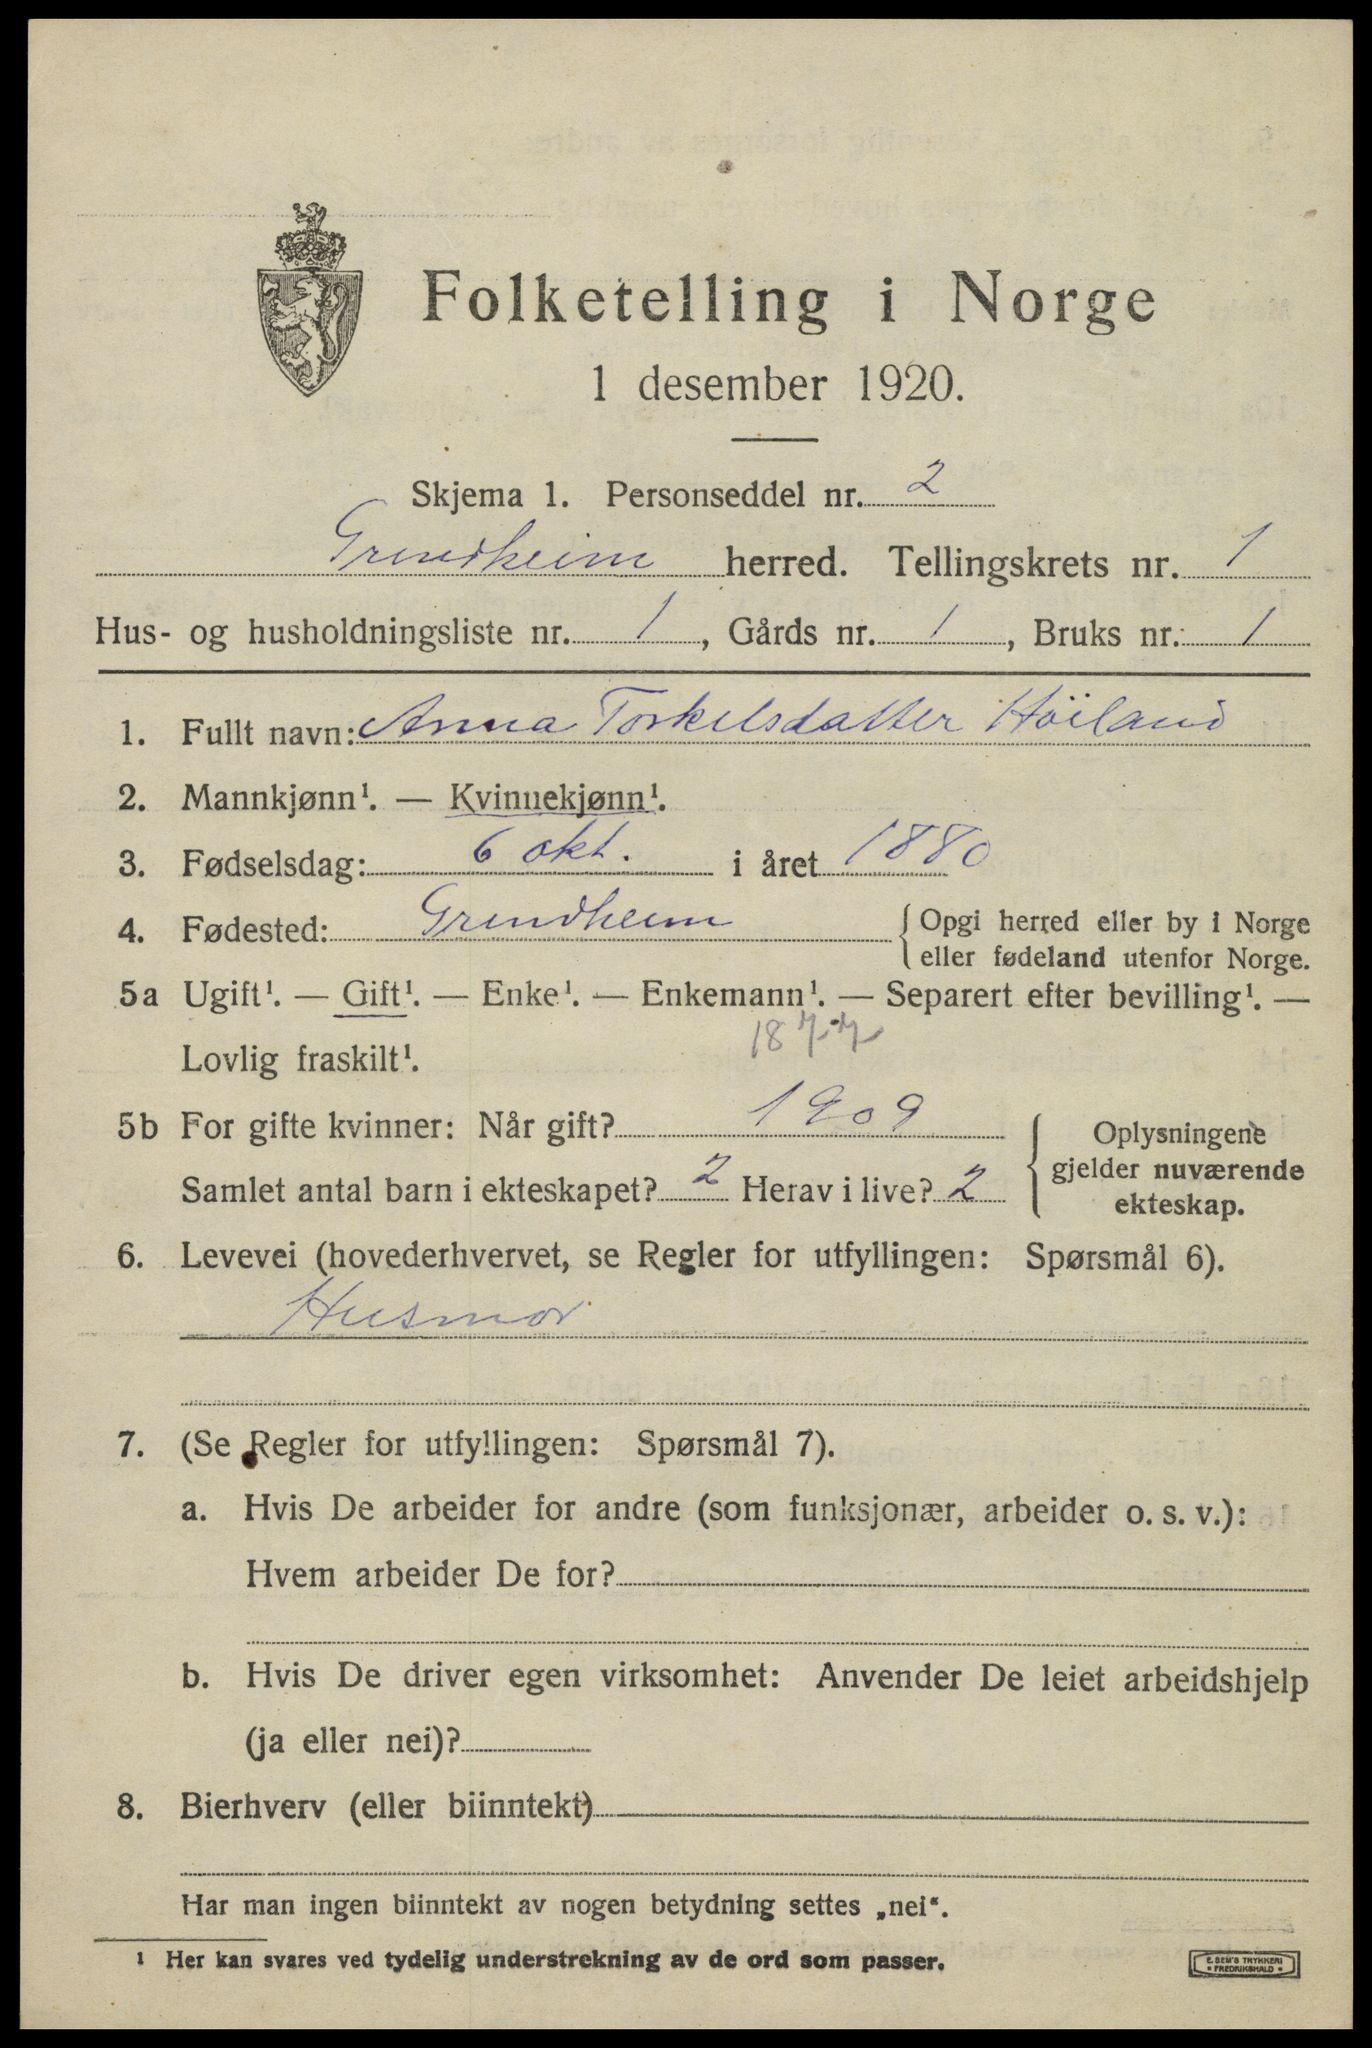 Folketelling i Norge
1 desember 1920.
Skjema 1. Personseddel nr. 2
Grindheim herred. Tellingskrets nr. 1
Hus- og husholdningsliste nr. 1, Gårds nr. 1, Bruks nr. 1
1. Fullt navn: Anna Torkelsdatter Höiland
2. Mannkjønn¹. — Kvinnekjønn¹.
3. Fødselsdag: 6 okt. i året 1880
4. Fødested: Grindheim { Opgi herred eller by i Norge
eller fødeland utenfor Norge.
5a Ugift¹. — Gift¹. — Enke¹. — Enkemann¹. — Separert efter bevilling¹. —
Lovlig fraskilt¹. 1877
5b For gifte kvinner: Når gift? 1909
Samlet antal barn i ekteskapet? 2 Herav i live? 2
{ Oplysningene
gjelder nuværende
ekteskap.
6. Levevei (hovederhvervet, se Regler for utfyllingen: Spørsmål 6).
Husmor
7. (Se Regler for utfyllingen: Spørsmål 7).
a. Hvis De arbeider for andre (som funksjonær, arbeider o. s. v.):
Hvem arbeider De for?
b. Hvis De driver egen virksomhet: Anvender De leiet arbeidshjelp
(ja eller nei)?
8. Bierhverv (eller biinntekt)
Har man ingen biinntekt av nogen betydning settes „nei“.
¹ Her kan svares ved tydelig understrekning av de ord som passer.
E. SEM'S TRYKKERI
• FREDRIKSHALD •